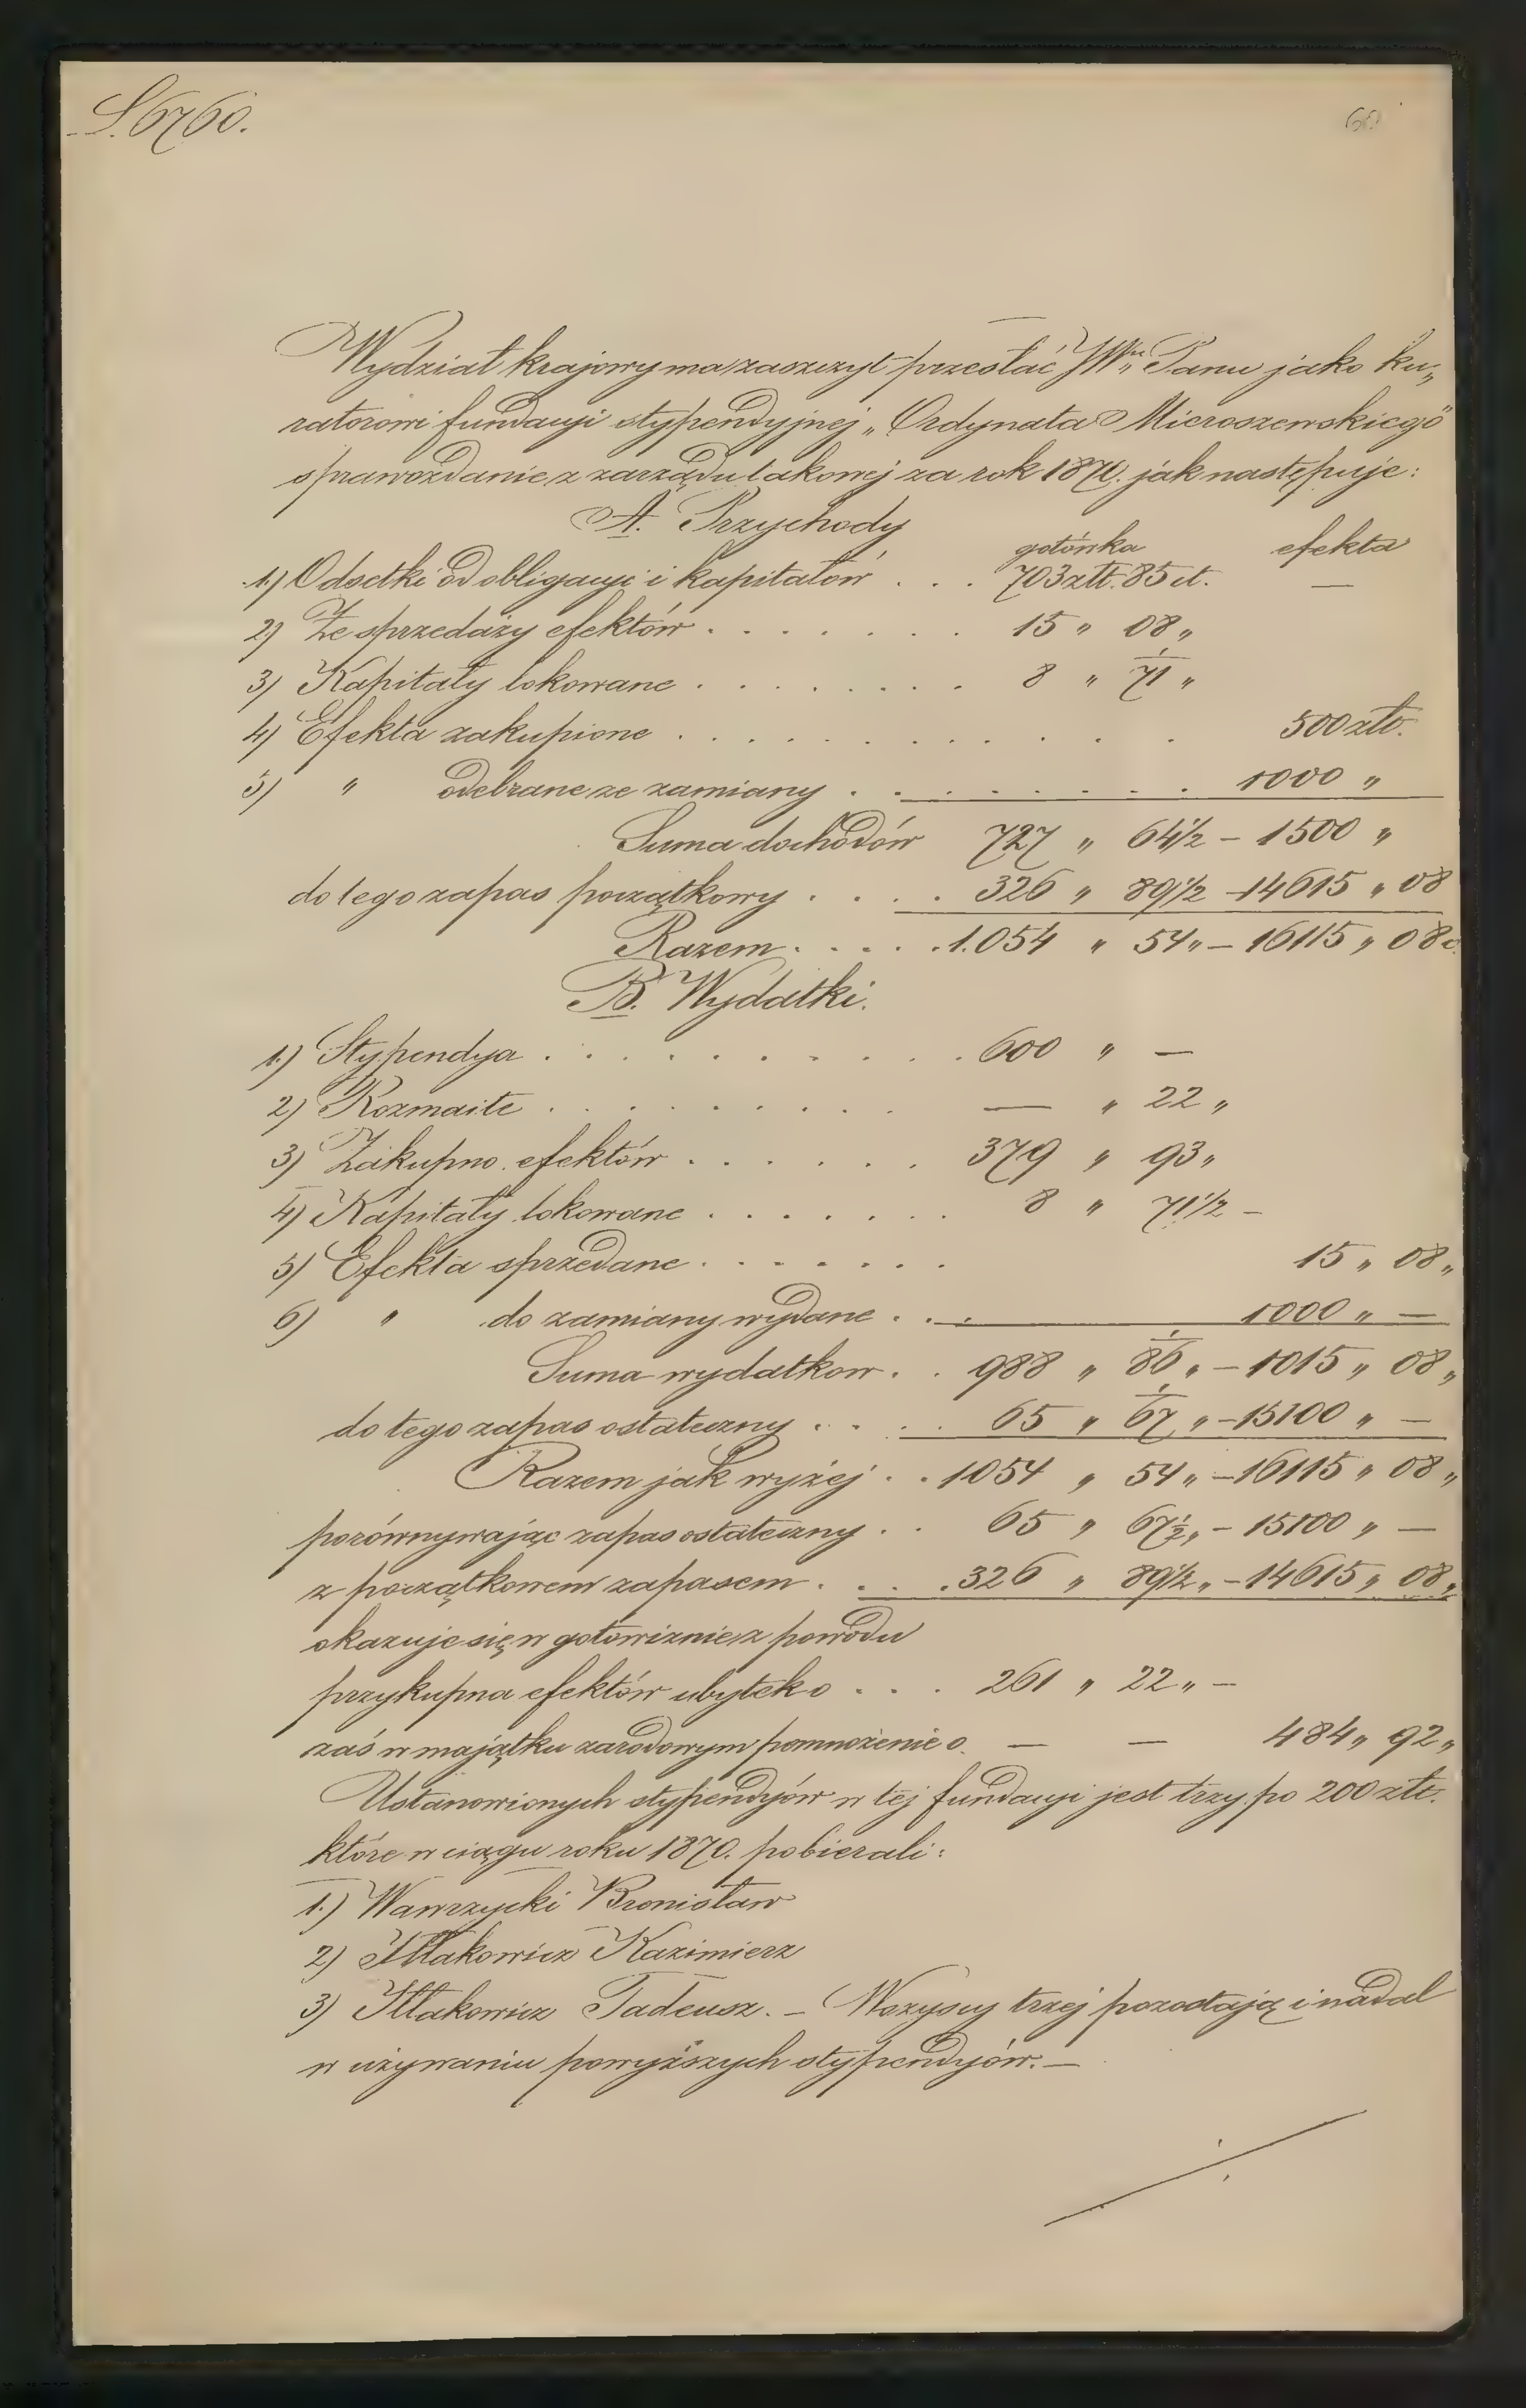 S. 6760.
60
Wydział krajowy ma zaszczyt przesłać JWu Panu jako ku„
ratorowi fundacyi stypendyjnej „Ordynata Mieroszewskiego"
sprawozdanie z zarządu takowej za rok 1870. jak następuje:
A. Przychody
gotówka efekta
1.) Odsetki od obligacyi i kapitałów . . . 703 złt. 85 ct. —
2) Ze sprzedaży efektów . . . . . . . 15 " 08 "
3) Kapitały lokowane . . . . . . . . 8 " 71 "
4) Efekta zakupione . . . . . . . . . . . . . 500 złt.
5) " odebrane ze zamiany . . . . . . . . 1000 "
Suma dochodów 727 " 64½ – 1500 "
do tego zapas początkowy . . . . 326 " 89½ – 14615 " 08
Razem . . . . . 1.054 " 54 " – 16115 " 08 c.
B. Wydatki.
1.) Stypendya . . . . . . . . . . . 600 " —
2) Rozmaite . . . . . . . . . — " 22 "
3) Zakupno efektów . . . . . . . 379 " 93 "
4) Kapitały lokowane . . . . . . . 8 " 71½ –
5) Efekta sprzedane . . . . . . . 15 " 08 "
6) " do zamiany wydane . . . 1000 " —
Suma wydatkow . . 988 " 86 " – 1015 " 08 "
do tego zapas ostateczny . . . . 65 " 67 " – 15100 " —
Razem jak wyżej . . 1054 " 54 " – 16115 " 08 "
porównywając zapas ostateczny . . 65 " 67½ " – 15100 " —
z początkowem zapasem . . . . 326 " 89½ " – 14615 " 08 "
okazuje się w gotowiznie z powodu
przykupna efektów ubytek o . . . 261 " 22 " –
zaś w majątku zarodowym pomnożenie o. — — 484 " 92 "
Ustanowionych stypendyów w tej fundacyi jest trzy po 200 złt.
które w ciągu roku 1870. pobierali:
1.) Wawrzycki Bronisław
2) Iłłakowicz Kazimierz
3) Iłłakowicz Tadeusz. – Wszyscy trzej pozostają i nadal
w używaniu powyższych stypendyów. —